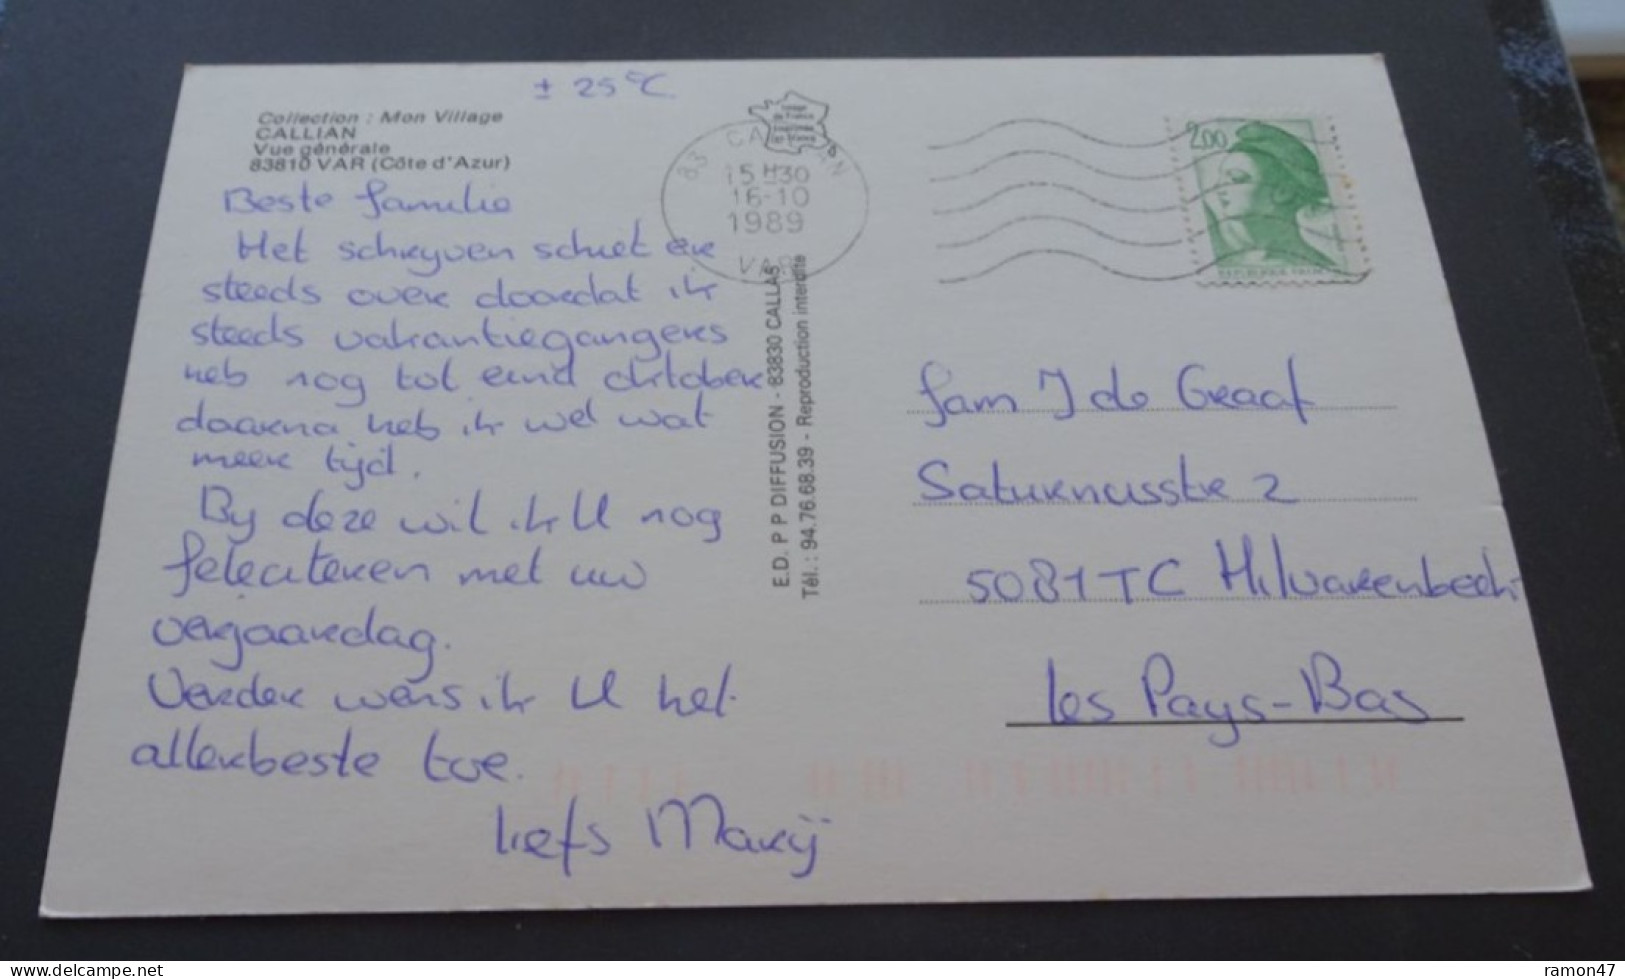 ± 25 °C
Collection : Mon Village
CALLIAN
Vue générale
83810 VAR (Côte d'Azur)
Beste familie
Het schryven schiet er
steeds over doordat ik
steeds vakantiegangers
heb nog tot eind oktober
daarna heb ik wel wat
meer tijd.
By deze wil ik U nog
feleciteren met uw
verjaardag.
Verder wens ik U het
allerbeste toe.
liefs Maryÿ
83 CALLIAN
15 H30
16-10
1989
VAR
E.D. P P DIFFUSION - 83830 CALLAS
Tél. : 94.76.68.39 - Reproduction interdite
2,00
fam J de Graaf
Saturnusstr 2
5081TC Hilvarenbeek
les Pays-Bas
ramon47